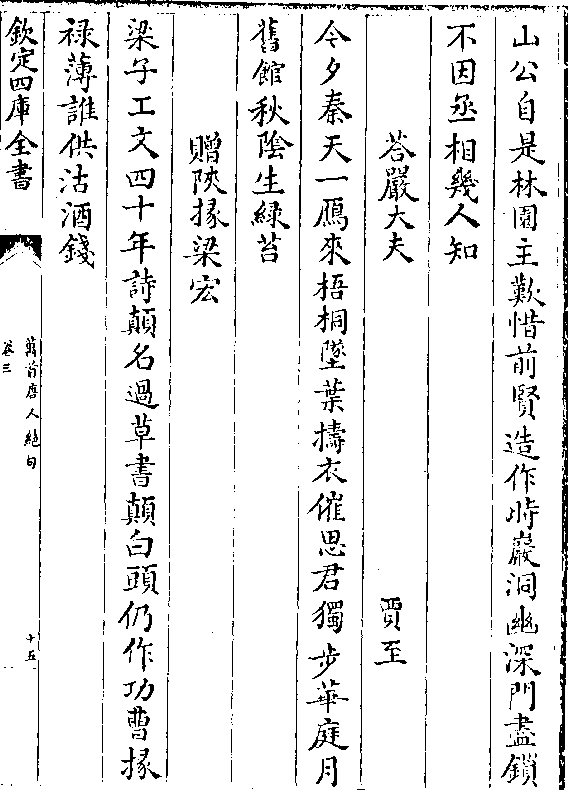 山公自是林園主歎惜前賢造作時巖洞幽深門盡鎖
不因丞相幾人知
荅嚴大夫
賈至
今夕秦天一鴈來梧桐墜葉擣衣催思君獨步華庭月
舊館秋陰生緑苔
贈陜掾梁宏
梁子工文四十年詩顛名過草書顛白頭仍作功曹掾
禄薄誰供沽酒錢
欽定四庫全書
萬首唐人絶句
卷三
十五